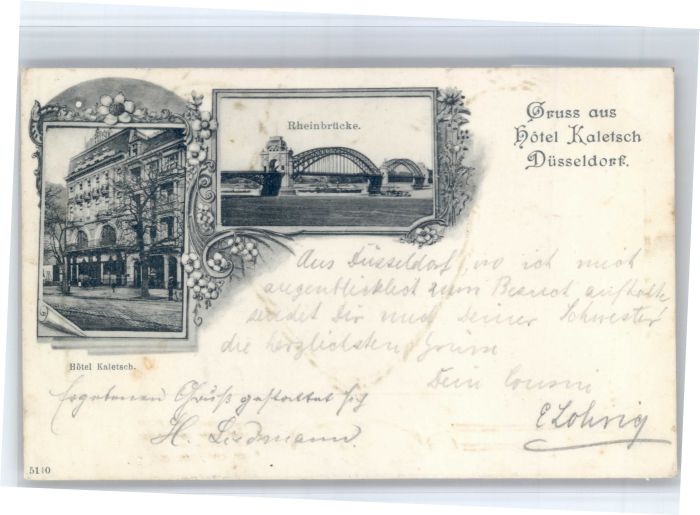 Gruss aus
Hôtel Kaletsch
Düsseldorf.
Rheinbrücke.
Hôtel Kaletsch.
Aus Düsseldorf, wo ich mich
augenblicklich zum Besuch aufhalte
sendet Dir und Deiner Schwester
die herzlichsten Grüsse
Dein Cousin
Ergebenen Gruß gestattet sich
H.
5140